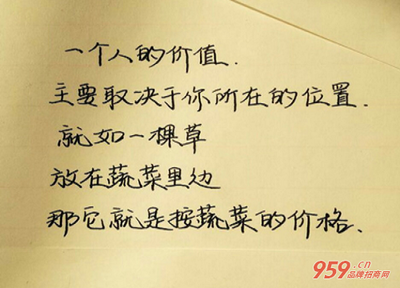 一个人的价值.
主要取决于你所在的位置.
就如一棵草
放在蔬菜里边
那它就是按蔬菜的价格.
959.cn
品牌招商网